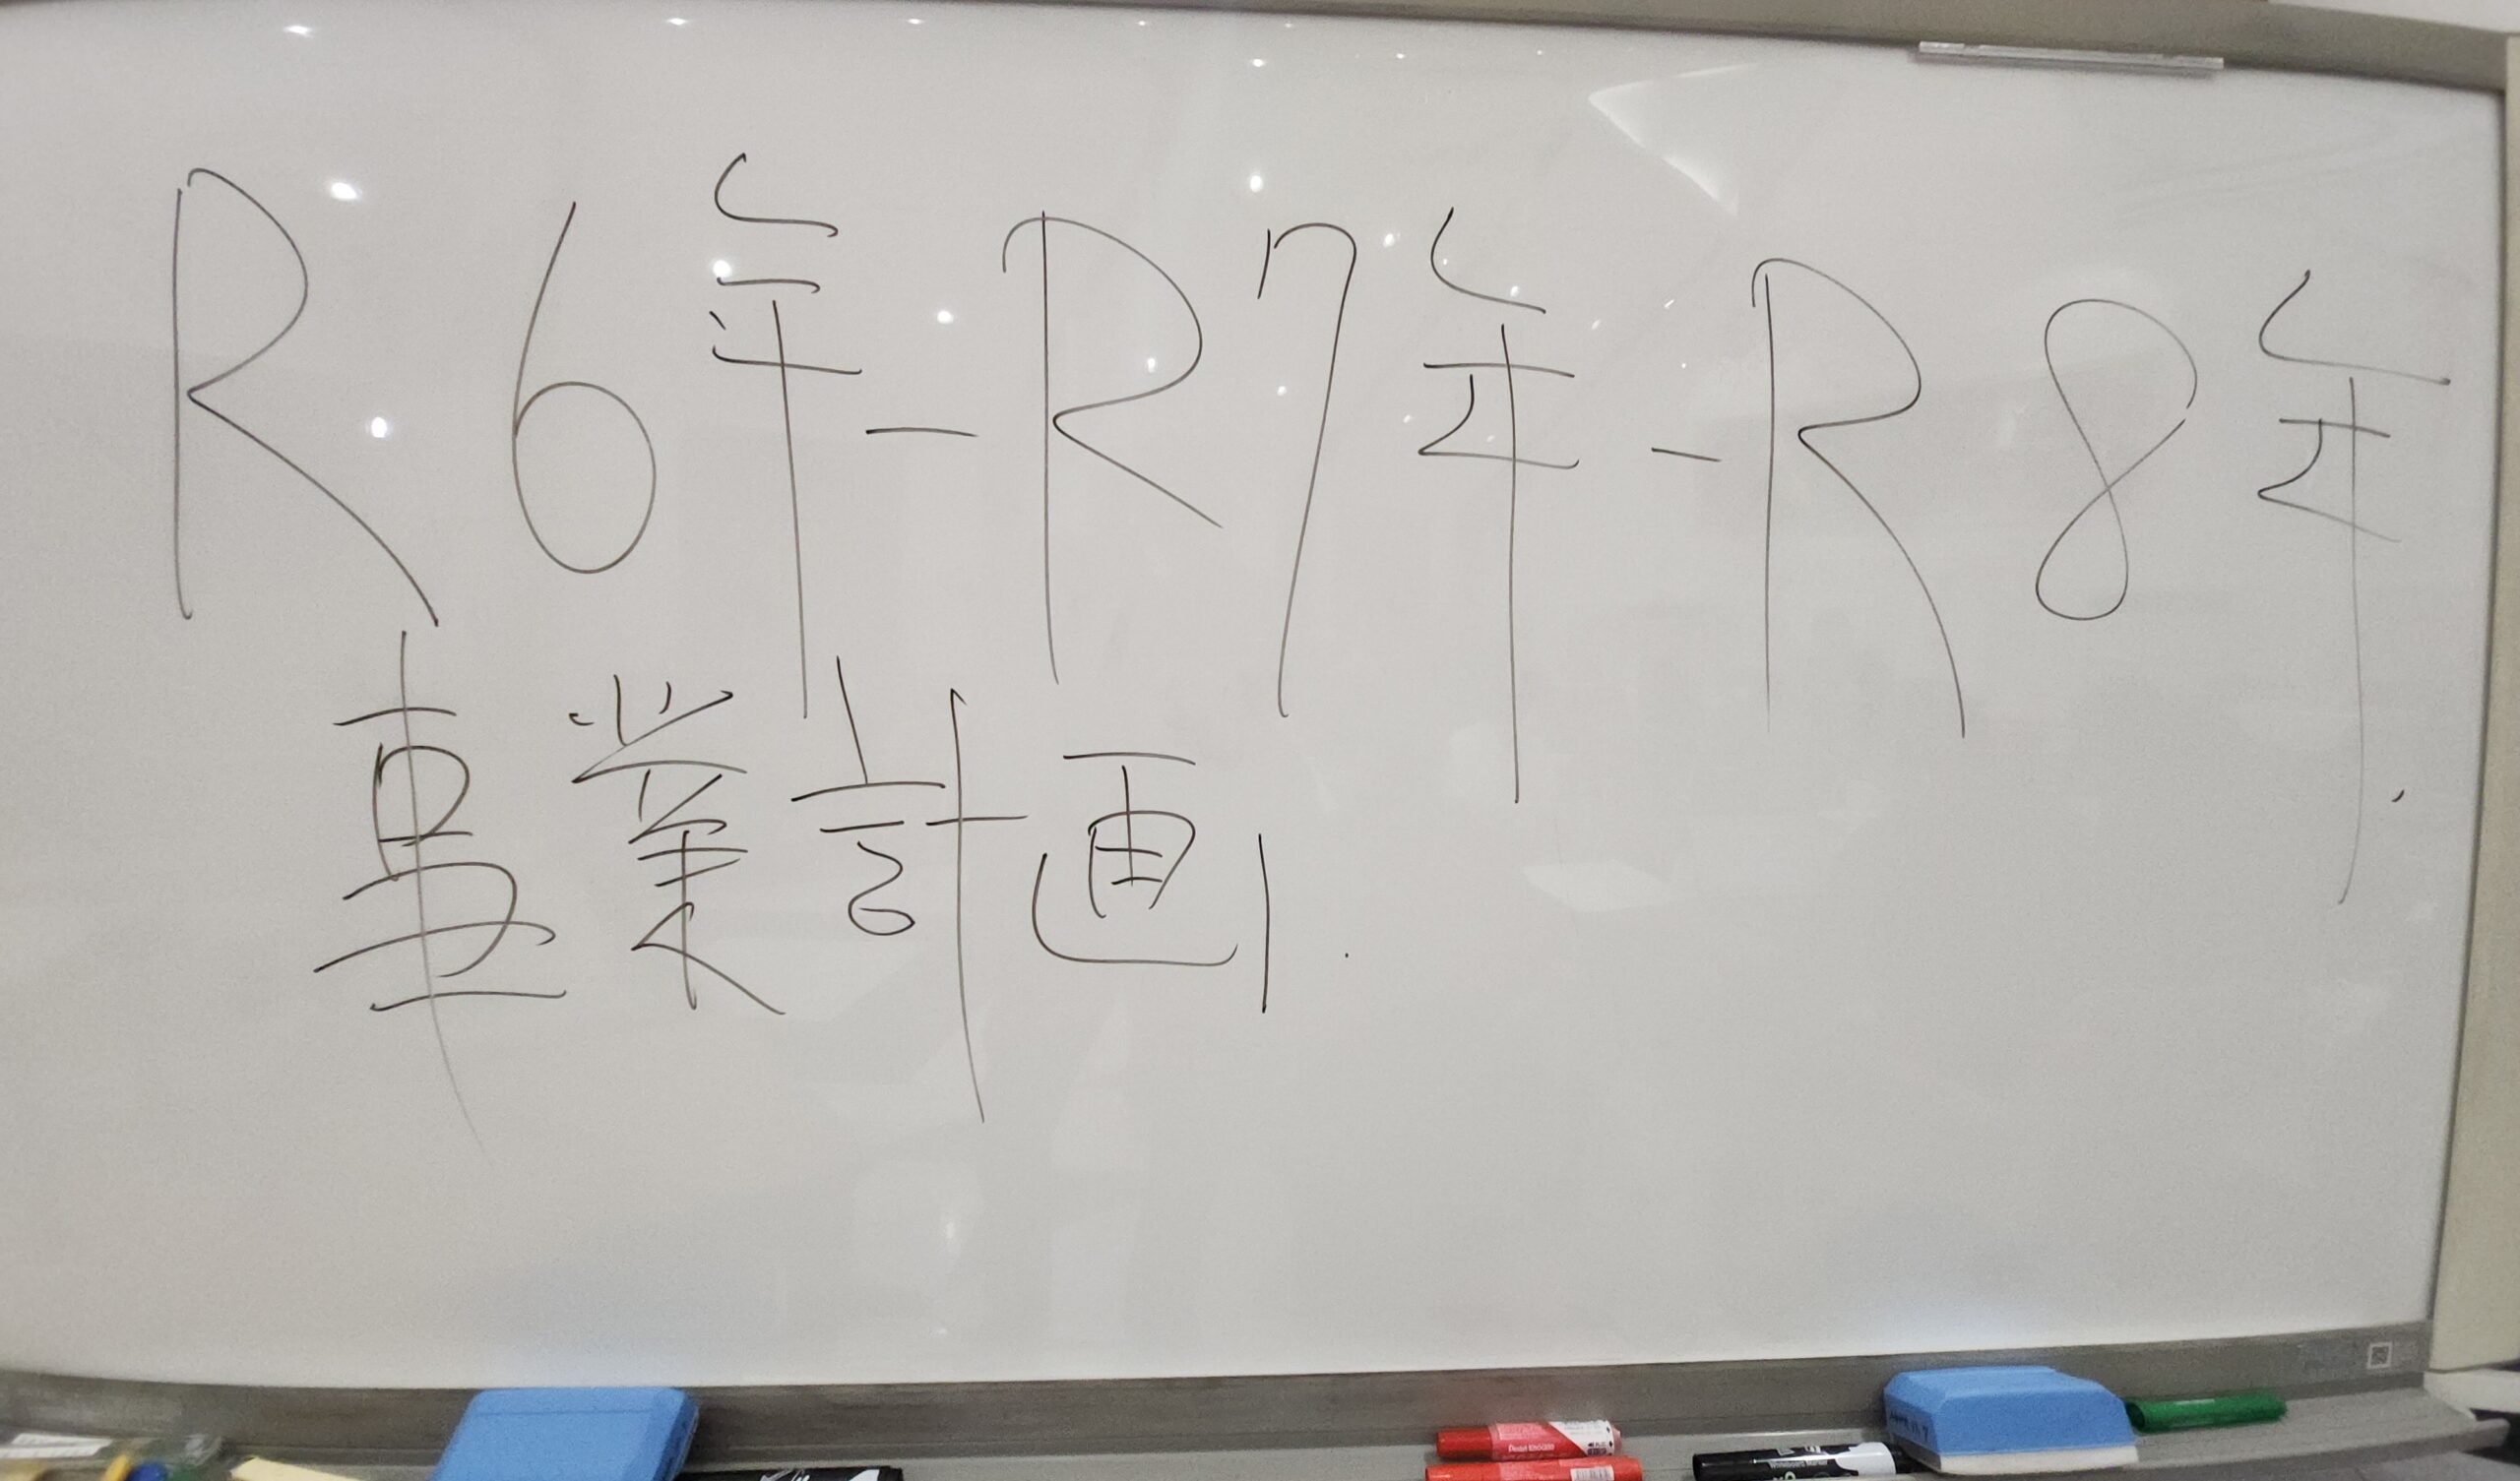 R6年-R7年-R8年
事業計画